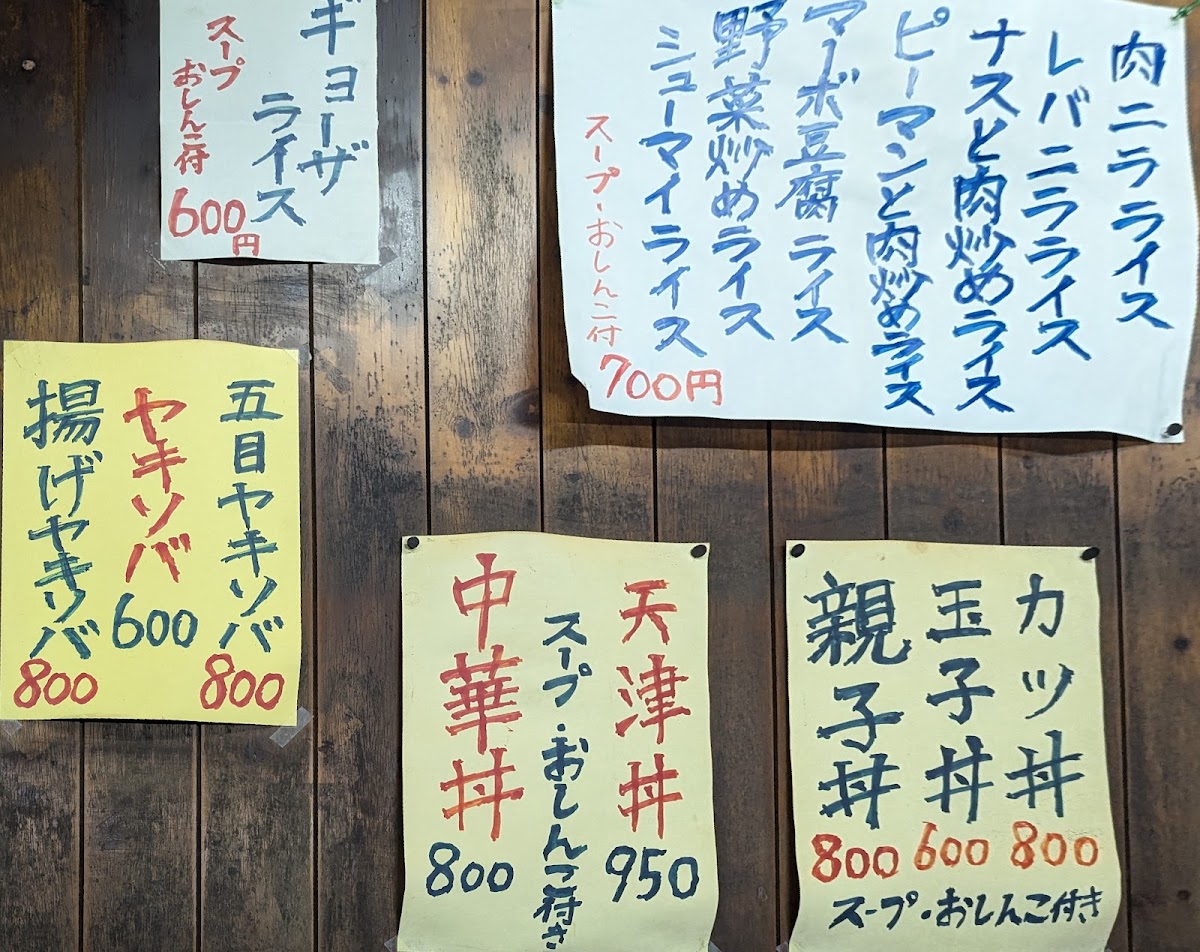 ギョーザ
ライス
スープ
おしんこ付
600円
肉ニラライス
レバニラライス
ナスと肉炒めライス
ピーマンと肉炒めライス
マーボ豆腐ライス
野菜炒めライス
シューマイライス
スープ・おしんこ付
700円
五目ヤキソバ
800
ヤキソバ
600
揚げヤキソバ
800
天津丼
950
スープ・おしんこ付き
中華丼
800
カツ丼
800
玉子丼
600
親子丼
800
スープ・おしんこ付き